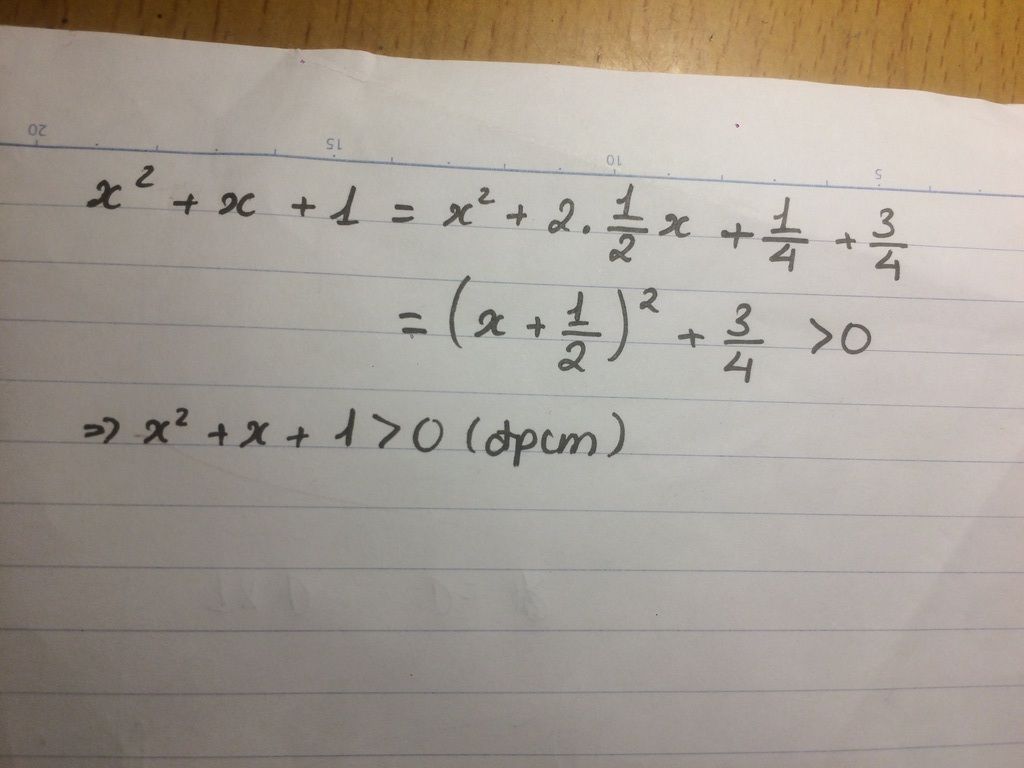 20 15 10 5
x² + x + 1 = x² + 2 . 1/2 x + 1/4 + 3/4
= (x + 1/2)² + 3/4 > 0
=> x² + x + 1 > 0 (đpcm)